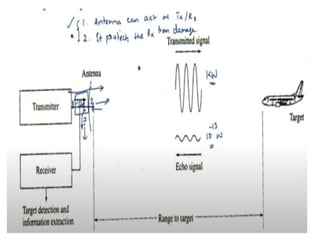 1. Antenna can act as Tx/Rx
2. It protects the Rx from damage
Transmitted signal
Antenna
1KW
Transmitter
10⁻¹³ W
Target
Receiver
Echo signal
Target detection and
information extraction
Range to target